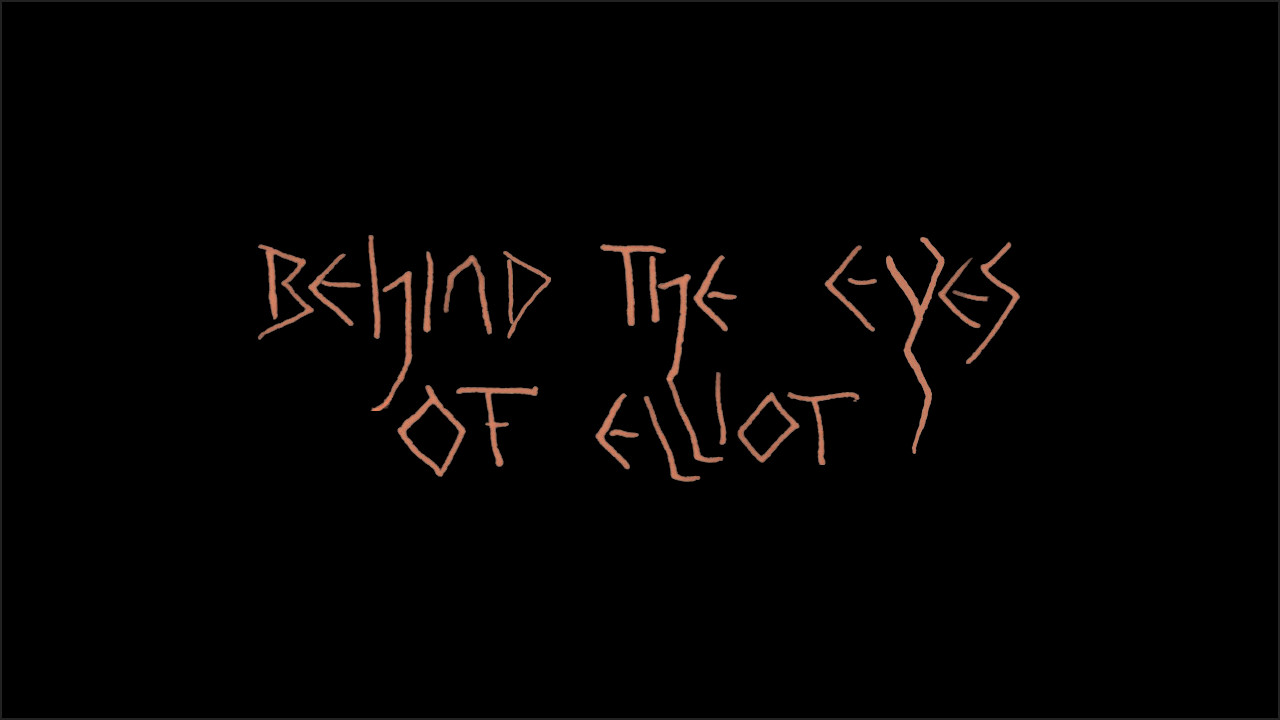 Behind The Eyes
Of Elliot